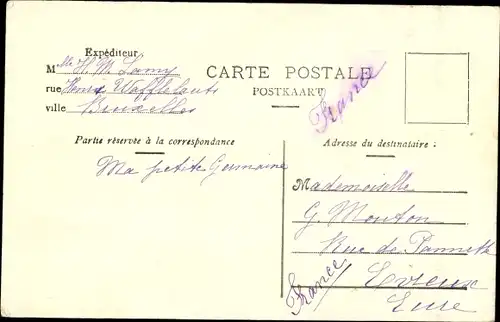 Expéditeur
Mlle H. M. Lamy
rue Henri Wafflelauts
ville Bruxelles
CARTE POSTALE
POSTKAART
France
Partie réservée à la correspondance
Adresse du destinataire :
Ma petite Germaine
Mademoiselle
G. Mouton
Rue de Panneth
Evreux
Eure
France